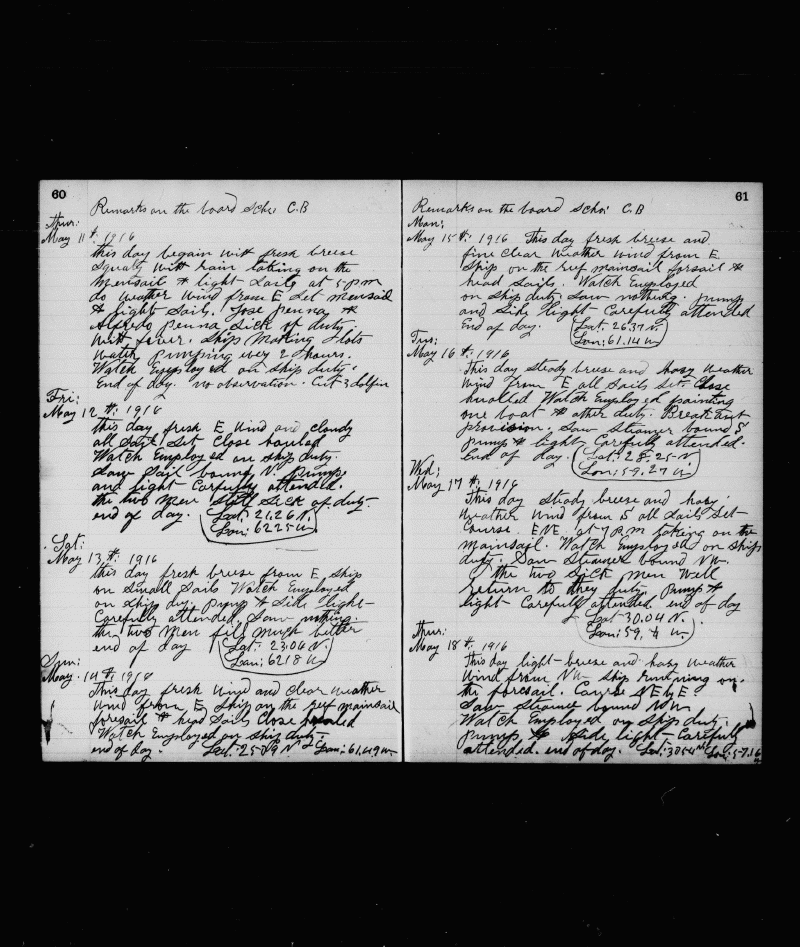 60
Remarks on the board Schr: C.B
Thur:
May 11th: 1916
this day begain with fresh breeze
squaly with rain taking on the
mensail & light sails at 5 pm
do weather wind from E set mensail
& light sails. Jose Penna &
Alfredo Penna sick of duty
with fever. Ship Making lots
water pumping evry 2 hours.
Watch Employed on ship duty.
End of day. no observation. Cut 3 dolfin
Fri:
May 12th: 1916
this day fresh E wind and cloudy
all sails set close hauled
Watch Employed on ship duty.
Saw sail bound N. Pump
and light carefully attended.
the two men still sick of duty.
end of day. Lat: 21.26 N.
Lon: 62.25 W
Sat:
May 13th: 1916
this day fresh breeze from E ship
on small sails Watch Employed
on ship duty. Pump & side light
carefully attended. Saw nothing.
the two men fils much better
end of day Lat: 23.06 N.
Lon: 62.18 W
Sun:
May 14th: 1916
This day fresh wind and clear weather
wind from E ship on the ref mainsail
foresail & head sails close hauled
Watch Employed on ship duty.
end of day. Lat. 25-09 N. Lon: 61.49 W
61
Remarks on the board Schr: C.B
Mon:
May 15th: 1916 This day fresh breeze and
fine clear weather wind from E
Ship on the reef mainsail forsail &
head sails. Watch Employed
on ship duty Saw nothing. pump
and side light carefully attended
End of day. Lat: 26.37 N.
Lon: 61.14 W
Tus:
May 16th: 1916
This day steady breeze and hasy weather
wind from E all sails set close
hualled Watch Employed painting
one boat & other duty. Break out
provision. Saw steamer bound S
pump & light carefully attended.
End of day. Lat: 28.25-N
Lon: 59.27 W
Wed:
May 17th: 1916
This day steady breeze and hasy
weather wind from S all sails set
Course ENE. at 7 P.M taking on the
mainsail. Watch Employed on ship
duty. Saw steamer bound NW.
The two sick men well
return to they duty. Pump &
light carefully attended. end of day
Lat-30.04 N.
Lon: 59. W
Thur:
May 18th: 1916
This day light breeze and hasy weather
wind from NW ship running on
the forsail. Course NE by E.
Saw steamer bound
Watch Employed on ship duty.
pump & side light carefully
attended. end of day. Lat: Lon: 57.16